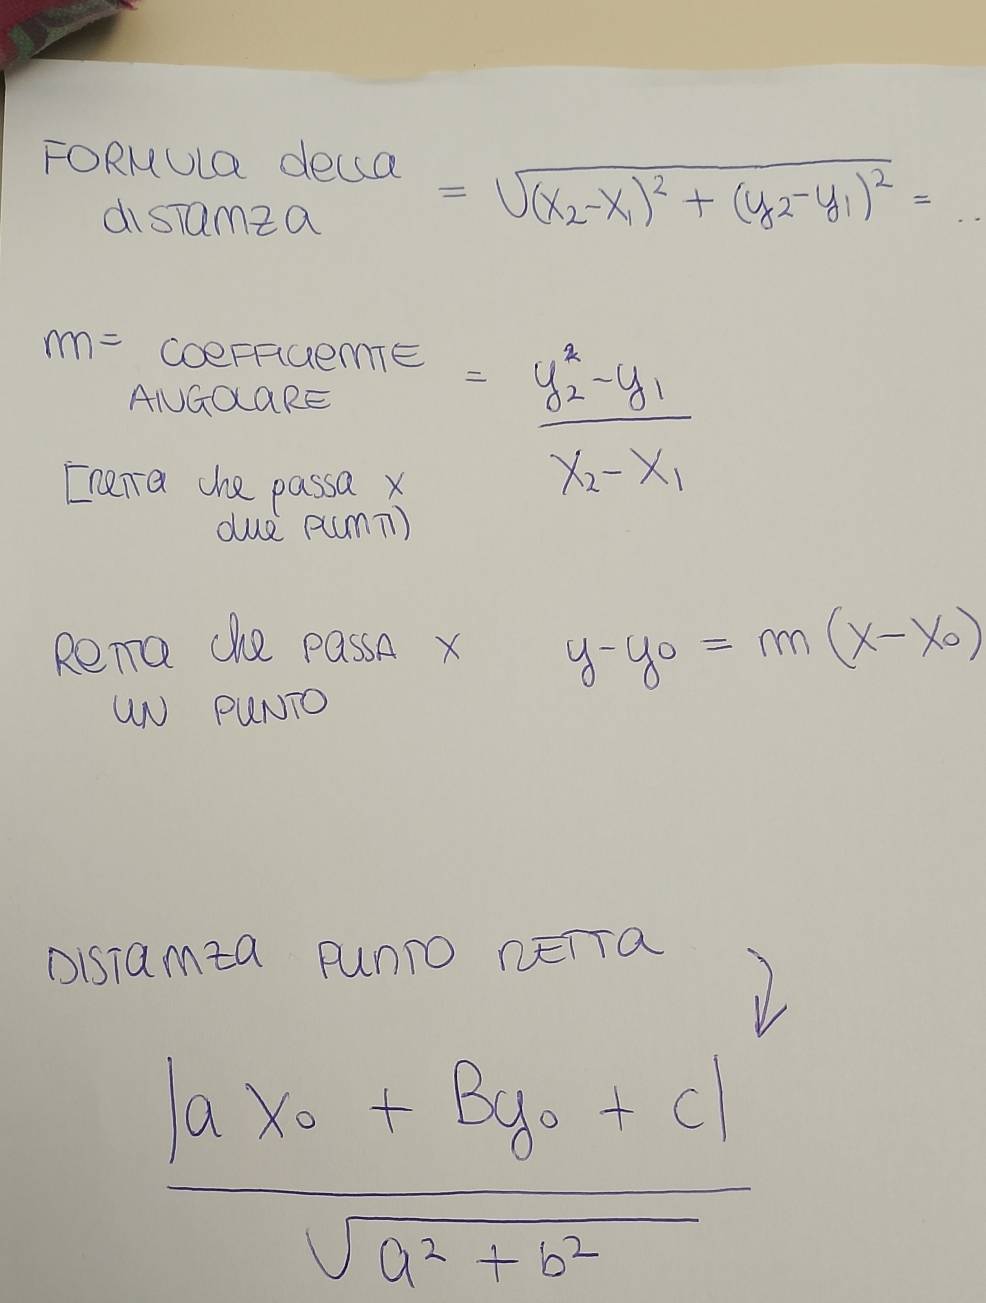 FORMULA della
distanza = √(x₂-x₁)² + (y₂-y₁)² = ..
m= COEFFICIENTE
ANGOLARE = y₂²-y₁ / x₂-x₁
[retta che passa x
due punti)
Retta che PASSA x y-y₀ = m(x-x₀)
UN PUNTO
DISTANZA PUNTO RETTA
|ax₀ + By₀ + c|
√a² + b²